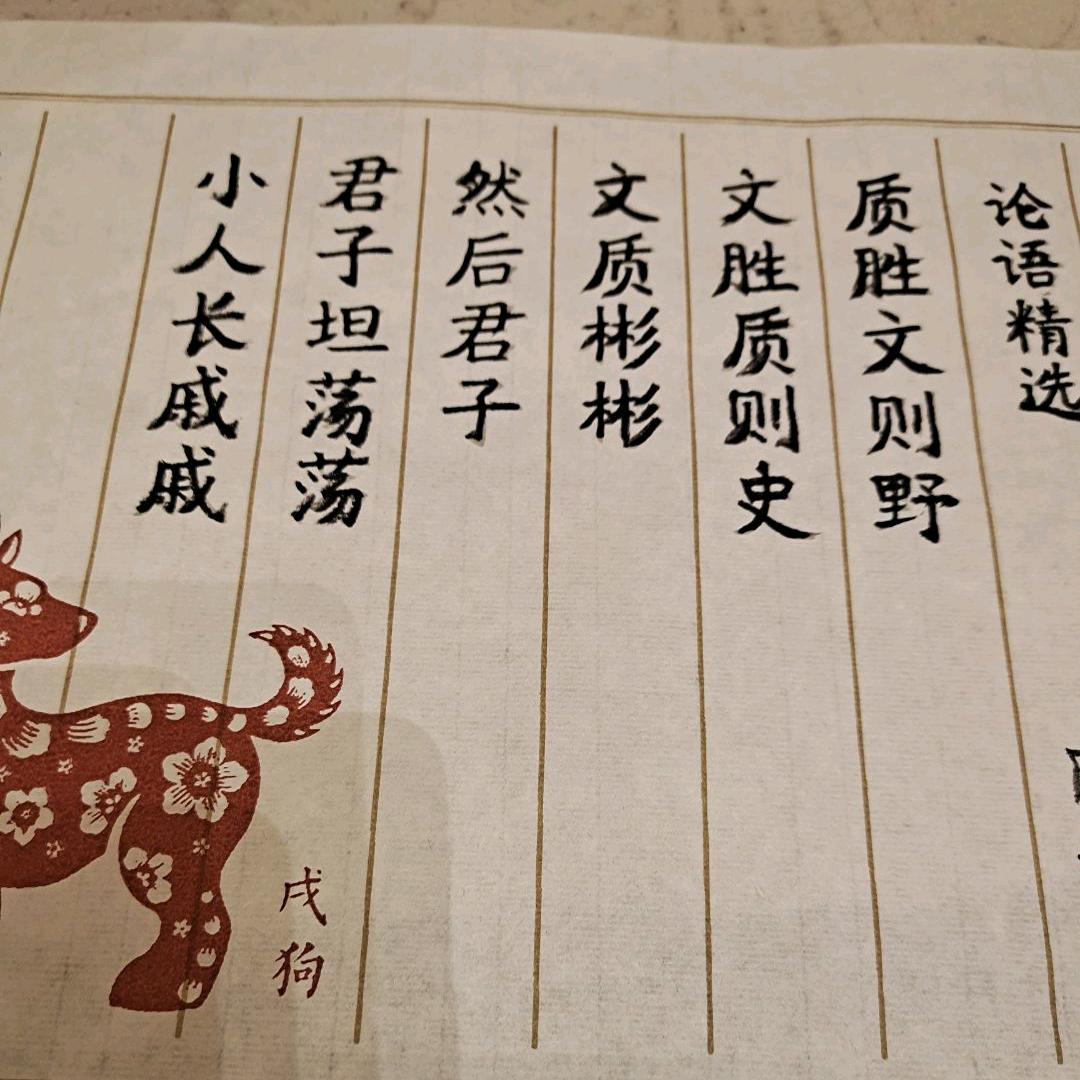 论语精选
质胜文则野
文胜质则史
文质彬彬
然后君子
君子坦荡荡
小人长戚戚
戌狗